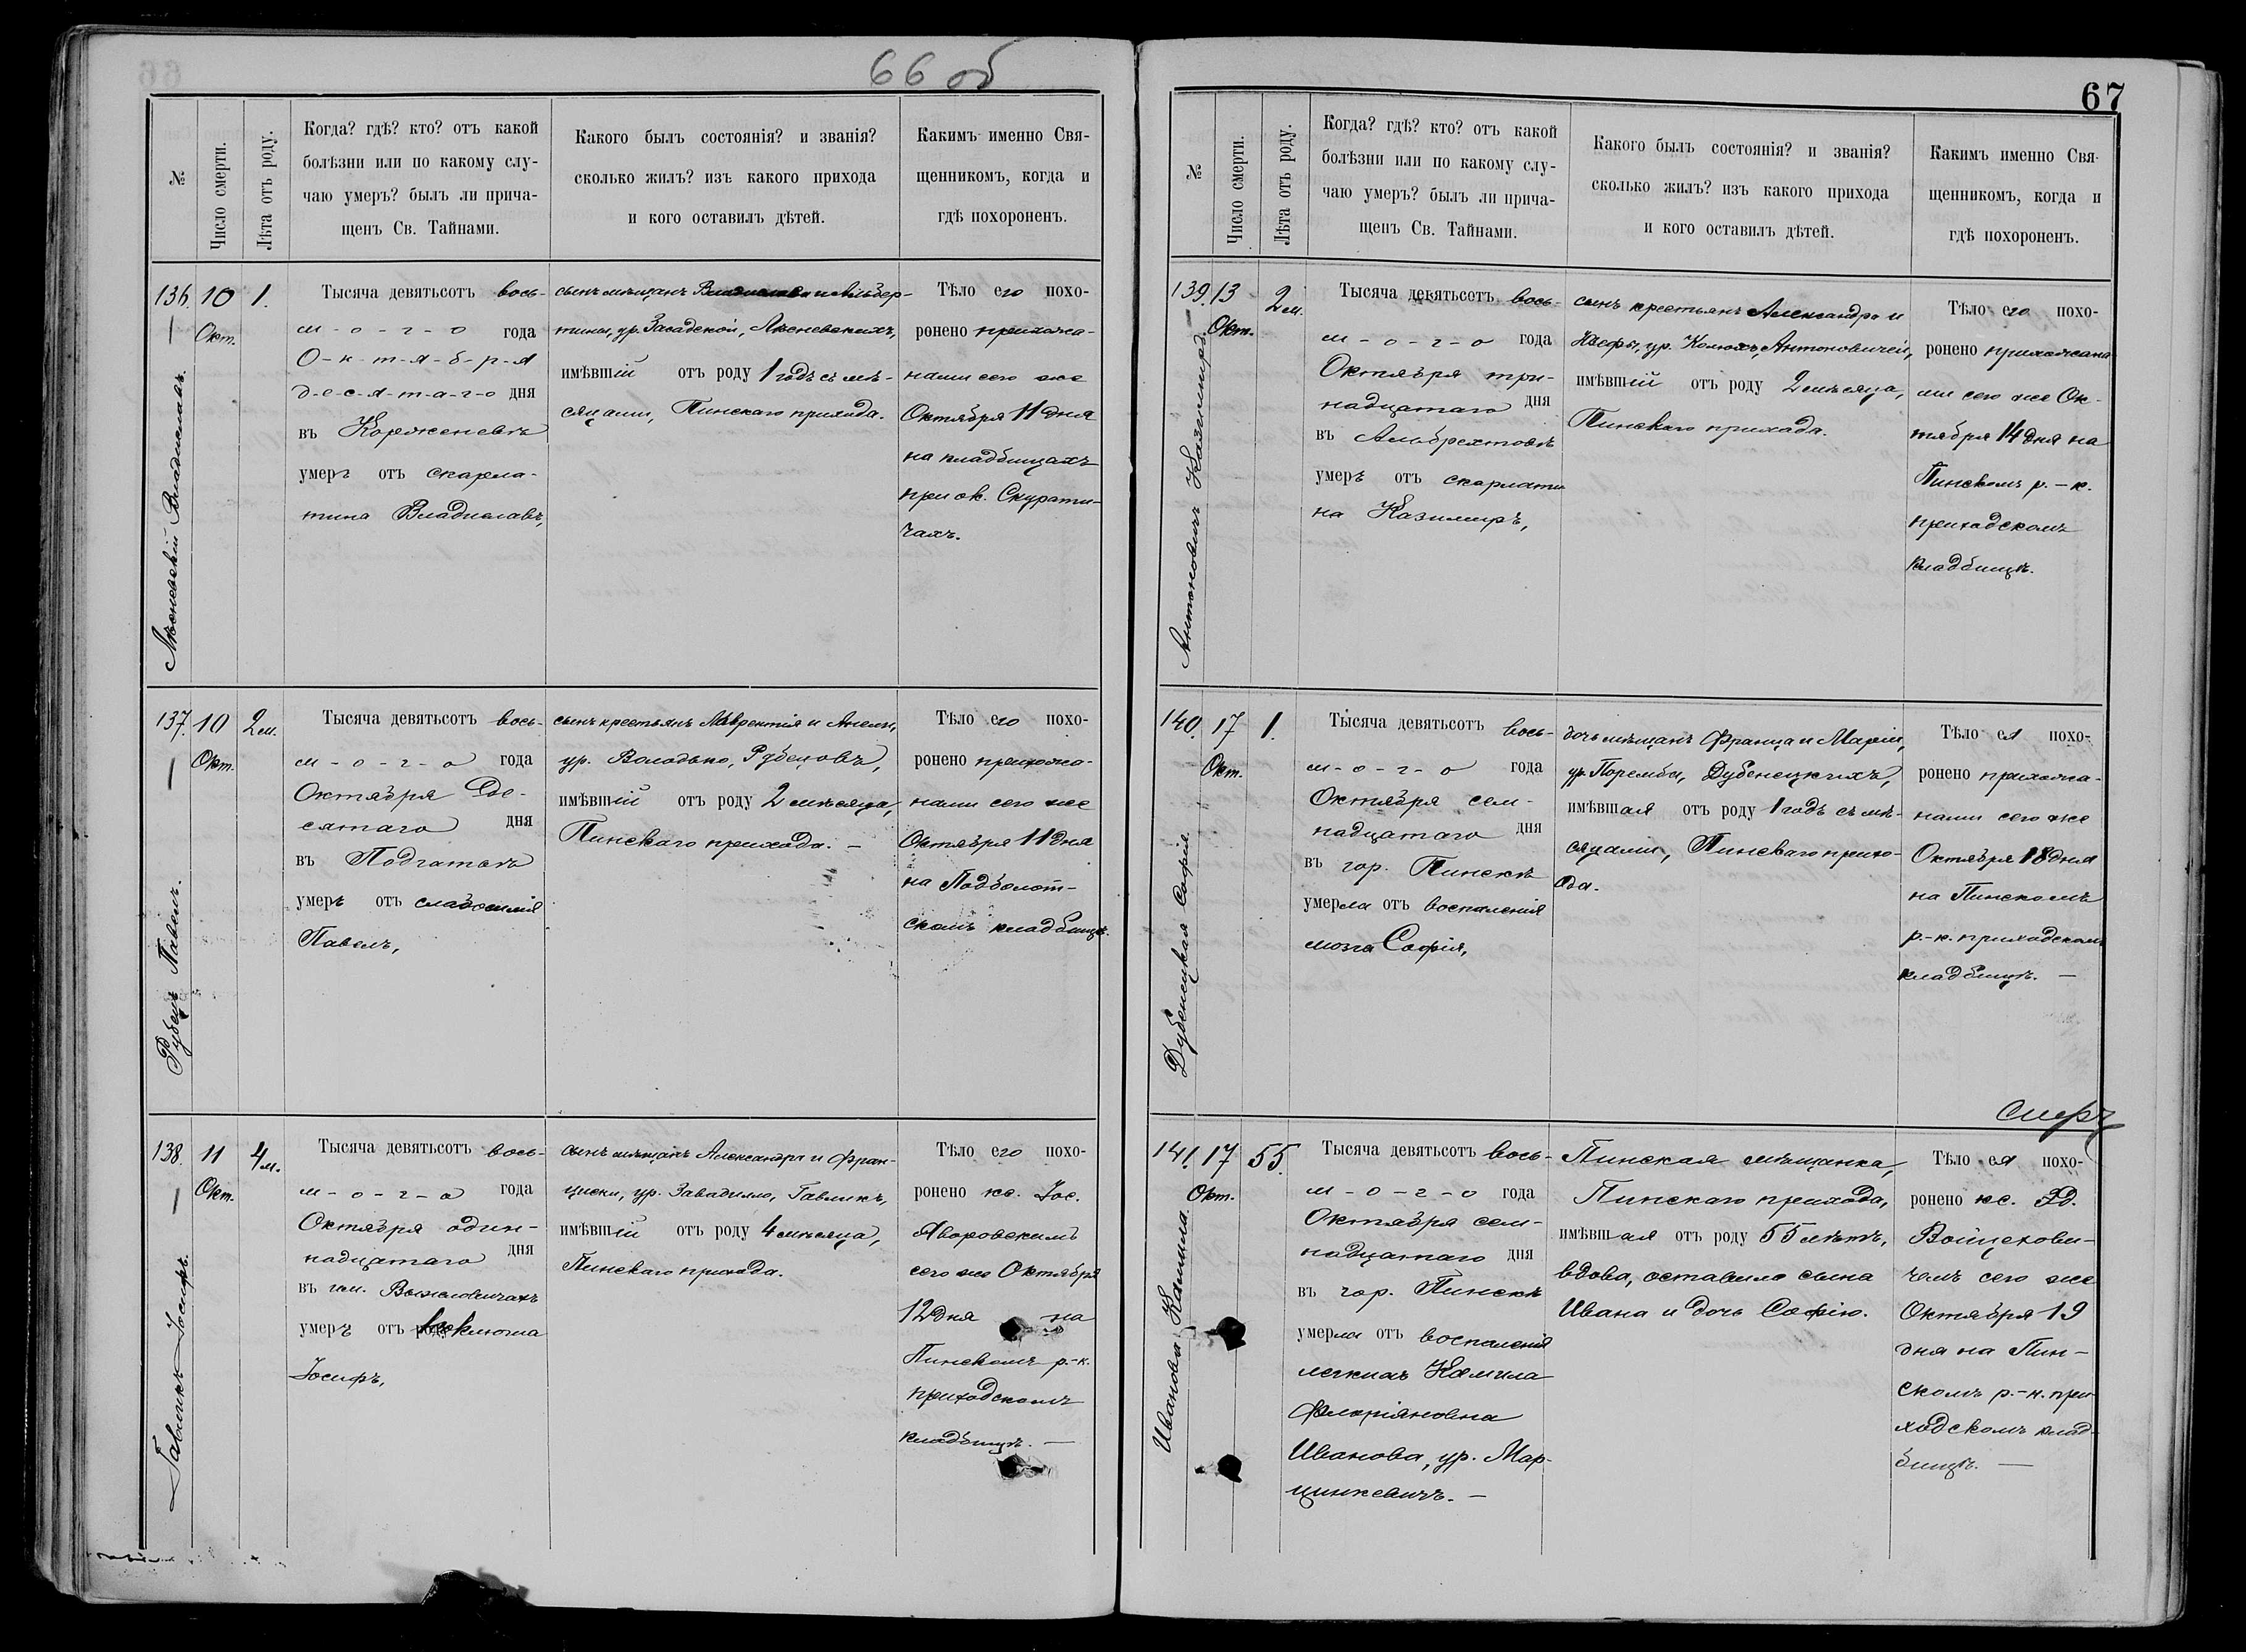 66 об
№
Число смерти.
Лѣта отъ роду.
Когда? гдѣ? кто? отъ какой
болѣзни или по какому слу-
чаю умеръ? былъ ли прича-
щенъ Св. Тайнами.
Какого былъ состоянія? и званія?
сколько жилъ? изъ какого прихода
и кого оставилъ дѣтей.
Какимъ именно Свя-
щенникомъ, когда и
гдѣ похороненъ.
136.
Владиславъ.
10
Окт.
1.
Тысяча девятьсотъ вось-
м-о-г-о года
О-к-т-я-б-р-я
д-е-с-я-т-а-г-о дня
въ
умеръ отъ скарла-
тина Владиславъ,
сынъ мѣщанъ Владислава и Альбер-
тины, ур. Засадской,
имѣвшій отъ роду 1 годъ съ мѣ-
сяцами, Пинскаго прихода.
Тѣло его похо-
ронено прихожа-
нами сего же
Октября 11 дня
на кладбищахъ
при ок. Скурати-
чахъ.
137.
Рубецъ Павелъ.
10
Окт.
2 м.
Тысяча девятьсотъ вось-
м-о-г-о года
Октября де-
сятаго дня
въ
умеръ отъ слабосилія
Павелъ,
сынъ крестьянъ Лаврентія и Анели,
ур. Володько, Рубецовъ,
имѣвшій отъ роду 2 мѣсяца,
Пинскаго прихода. —
Тѣло его похо-
ронено прихожа-
нами сего же
Октября 11 дня
на Подболот-
скомъ кладбищѣ.
138.
Гавликъ Іосифъ.
11
Окт.
4 м.
Тысяча девятьсотъ вось-
м-о-г-о года
Октября один-
надцатаго дня
въ им.
умеръ отъ коклюша
Іосифъ,
сынъ мѣщанъ Александра и Фран-
циски, ур. Завадилло, Гавликъ,
имѣвшій отъ роду 4 мѣсяца,
Пинскаго прихода.
Тѣло его похо-
ронено кс. Іос.
Яворовскимъ
сего же Октября
12 дня на
Пинскомъ р.-к.
приходскомъ
кладбищѣ. —
67
№
Число смерти.
Лѣта отъ роду.
Когда? гдѣ? кто? отъ какой
болѣзни или по какому слу-
чаю умеръ? былъ ли прича-
щенъ Св. Тайнами.
Какого былъ состоянія? и званія?
сколько жилъ? изъ какого прихода
и кого оставилъ дѣтей.
Какимъ именно Свя-
щенникомъ, когда и
гдѣ похороненъ.
139.
Антоновичъ Казимиръ.
13
Окт.
2 м.
Тысяча девятьсотъ вось-
м-о-г-о года
Октября три-
надцатаго дня
въ Альбрехтовѣ
умеръ отъ скарлати
на Казимиръ,
сынъ крестьянъ Александра и
ур. Антоновичей,
имѣвшій отъ роду 2 мѣсяца,
Пинскаго прихода.
Тѣло его похо-
ронено прихожана
ми сего же Ок-
тября 14 дня на
Пинскомъ р.-к.
приходскомъ
кладбищѣ.
140.
Дубенецкая Софія.
17
Окт.
1.
Тысяча девятьсотъ вось-
м-о-г-о года
Октября сем-
надцатаго дня
въ гор. Пинскѣ
умерла отъ воспаленія
мозга Софія,
дочь мѣщанъ Франца и Маріи,
ур. Порембы, Дубенецкихъ,
имѣвшая отъ роду 1 годъ съ мѣ-
сяцами, Пинскаго прихо-
да.
Тѣло ея похо-
ронено прихожа-
нами сего же
Октября 18 дня
на Пинскомъ
р.-к. приходскомъ
кладбищѣ. —
141.
Иванова Камила.
17
Окт.
55.
Тысяча девятьсотъ вось-
м-о-г-о года
Октября сем-
надцатаго дня
въ гор. Пинскѣ
умерла отъ воспаленія
легкихъ Камила
Флоріяновна
Иванова, ур. Мар-
цинкевичъ. —
Пинская мѣщанка,
Пинскаго прихода,
имѣвшая отъ роду 55 лѣтъ,
вдова, оставила сына
Ивана и дочь Софію.
Тѣло ея похо-
ронено кс. Эд.
Войцехови-
чемъ сего же
Октября 19
дня на Пин-
скомъ р.-к. при
ходскомъ клад-
бищѣ. —